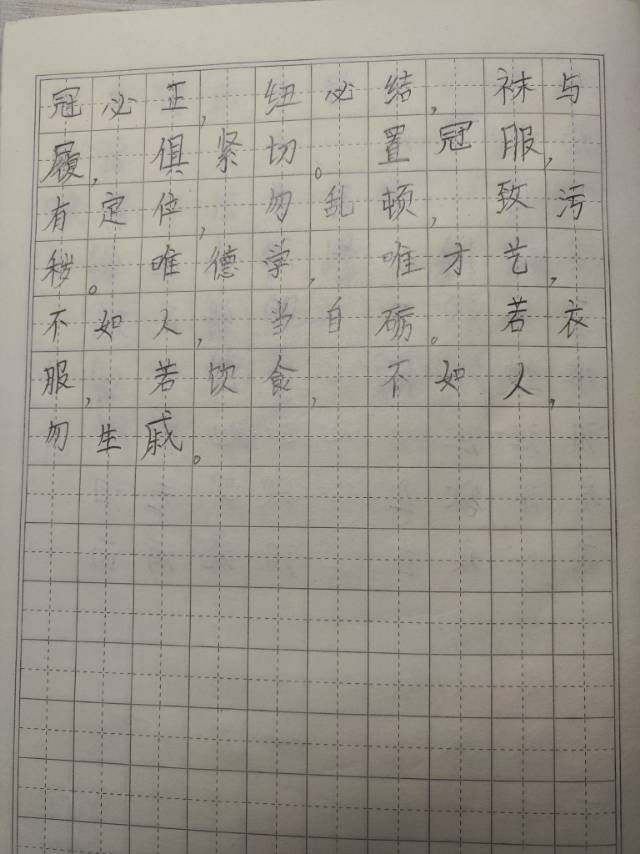 冠必正,纽必结,袜与
履,俱紧切。置冠服,
有定位,勿乱顿,致污
秽。唯德学,唯才艺,
不如人,当自砺。若衣
服,若饮食,不如人,
勿生戚。